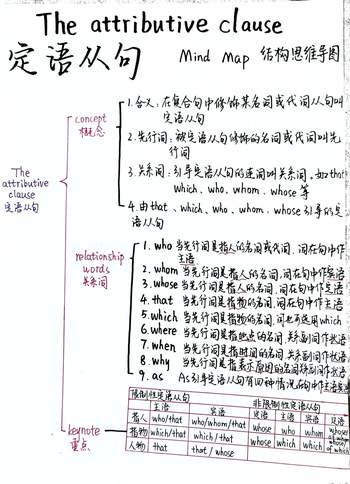 The attributive clause
定语从句
Mind Map 结构思维导图
The
attributive
clause
定语从句
concept
概念
1. 含义: 在复合句中修饰某名词或代词从句叫
定语从句
2. 先行词: 被定语从句修饰的名词或代词叫先
行词
3. 关系词: 引导定语从句的连词叫关系词。如that
which、who、whom、whose 等
4. 由that、which、who、whom、whose引导的定
语从句
relationship
words
关系词
1. who 当先行词是指人的名词或代词, 词在句中作
主语
2. whom 当先行词是指人的名词,词在句中作宾语
3. whose 当先行词是指人的名词,词在句中作定语
4. that 当先行词是指物的名词,词在句中作主语
5. which 当先行词是指物的名词,词也可选用which
6. where 当先行词是指地点的名词,关系副词作状语
7. when 当先行词是指时间的名词,关系副词作状语
8. why 当先行词是指表示原因的名词 作状语
9. as As引导定语从句有四种情况在句中作主语
keynote
重点
限制性定语从句 非限制性定语从句
主语 宾语 定语 主语 宾语 定语
指人 who/that who/whom/that whose who whom whose/
指物 which/that which/that whose which which
人物 that that/whose